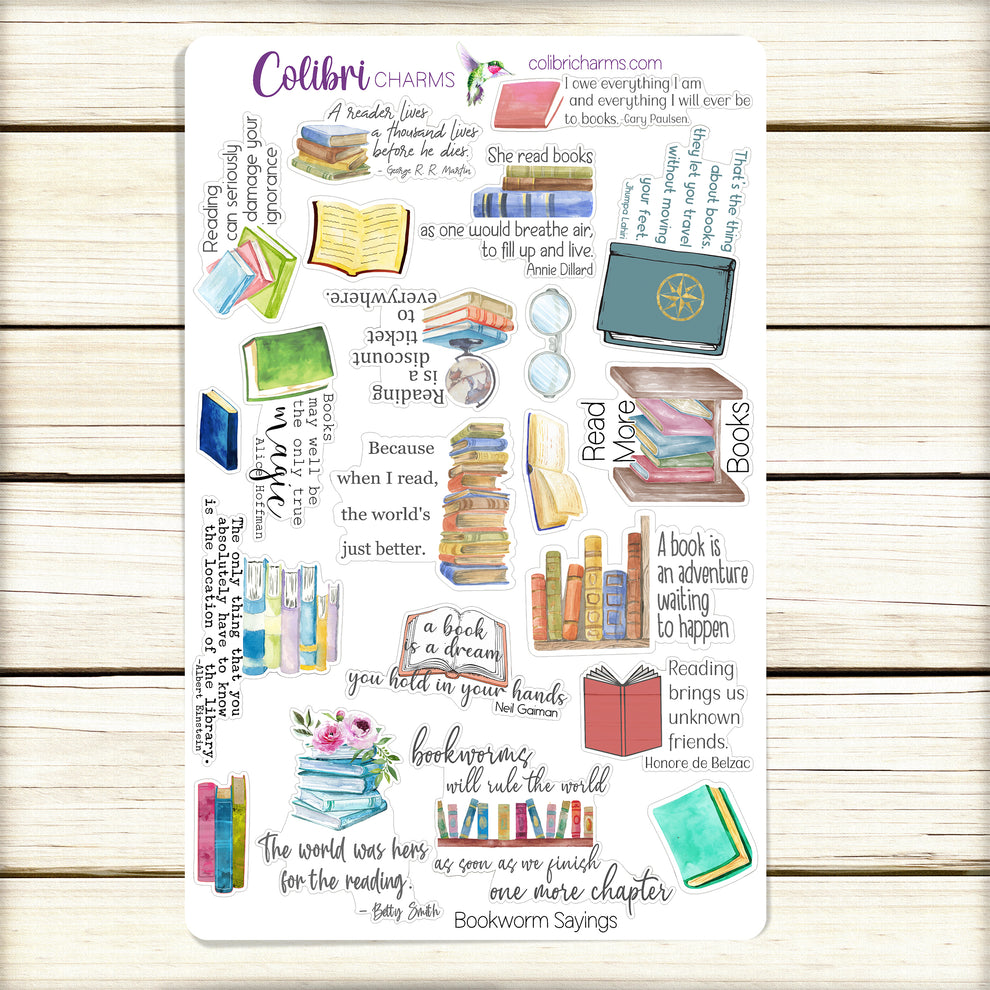 Colibri CHARMS
colibricharms.com
I owe everything I am
and everything I will ever be
to books. -Gary Paulsen.
A reader lives
a thousand lives
before he dies.
- George R. R. Martin
Reading
can seriously
damage your
ignorance
She read books
as one would breathe air,
to fill up and live.
Annie Dillard
That's the thing
about books.
they let you travel
without moving
your feet.
Jhumpa Lahiri
Reading
is a
discount
ticket
to
everywhere.
Books
may well be
the only true
magic
Alice Hoffman
Read
More
Books
Because
when I read,
the world's
just better.
The only thing that you
absolutely have to know
is the location of the library.
-Albert Einstein
A book is
an adventure
waiting
to happen
a book
is a dream
you hold in your hands
Neil Gaiman
Reading
brings us
unknown
friends.
Honore de Belzac
bookworms
will rule the world
as soon as we finish
one more chapter
The world was hers
for the reading.
- Betty Smith
Bookworm Sayings